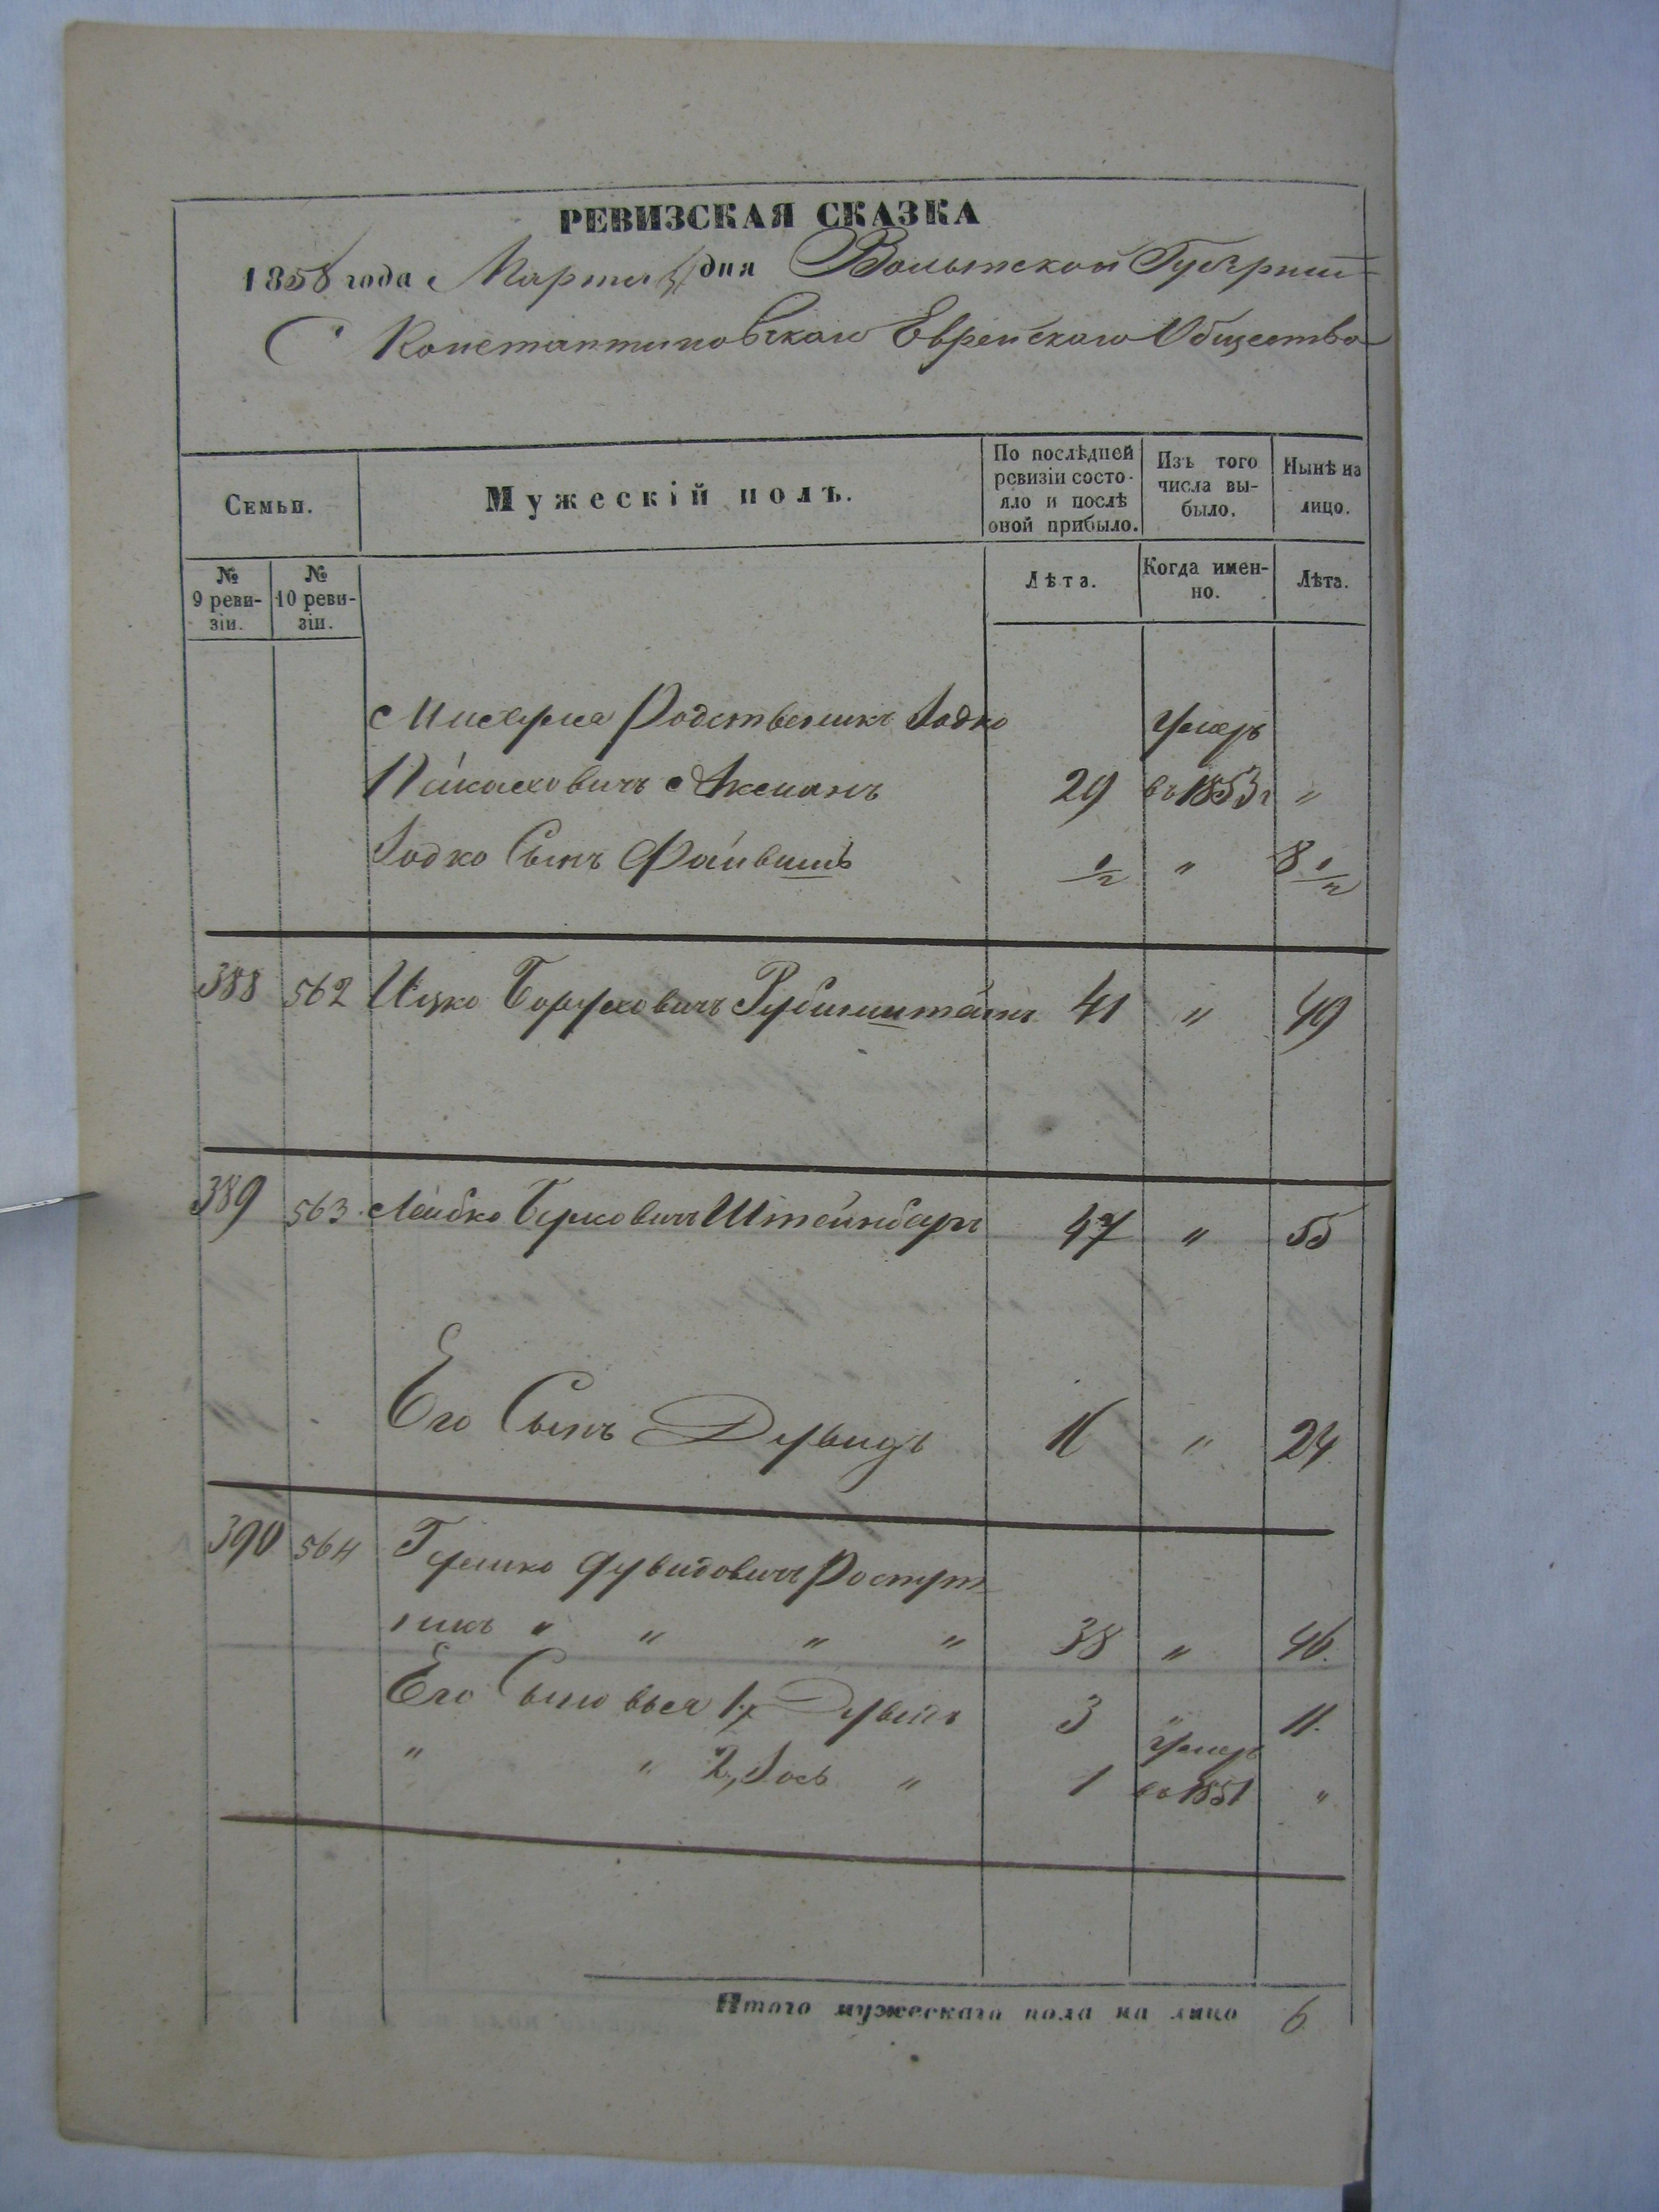 РЕВИЗСКАЯ СКАЗКА
1858 года Марта дня Волынской Губернии
С Константиновскаго Еврейскаго Общества
Семьи.
Мужескій полъ.
По послѣдней ревизіи состояло и послѣ оной прибыло.
Изъ того числа выбыло.
Нынѣ на лицо.
№ 9 ревизіи.
№ 10 ревизіи.
Лѣта.
Когда именно.
Лѣта.
Родственикъ Іодко Умеръ
29 въ 1853 г "
Іодко Сынъ Файвишъ 1/2 " 8 1/2
388 562 Ицко Боруховичъ Рубинштейнъ 41 " 49
389 563 Лейбко Берковичъ Штейнбарг 47 " 55
Его Сынъ Дувидъ 16 " 24
390 564 Гершко Дувидовичъ
никъ " " " " 38 " 46.
Его Сыновья 1, 3 " 11.
" " 2, Іось " 1 Умеръ во 1851 "
Итого мужескаго пола на лицо 6